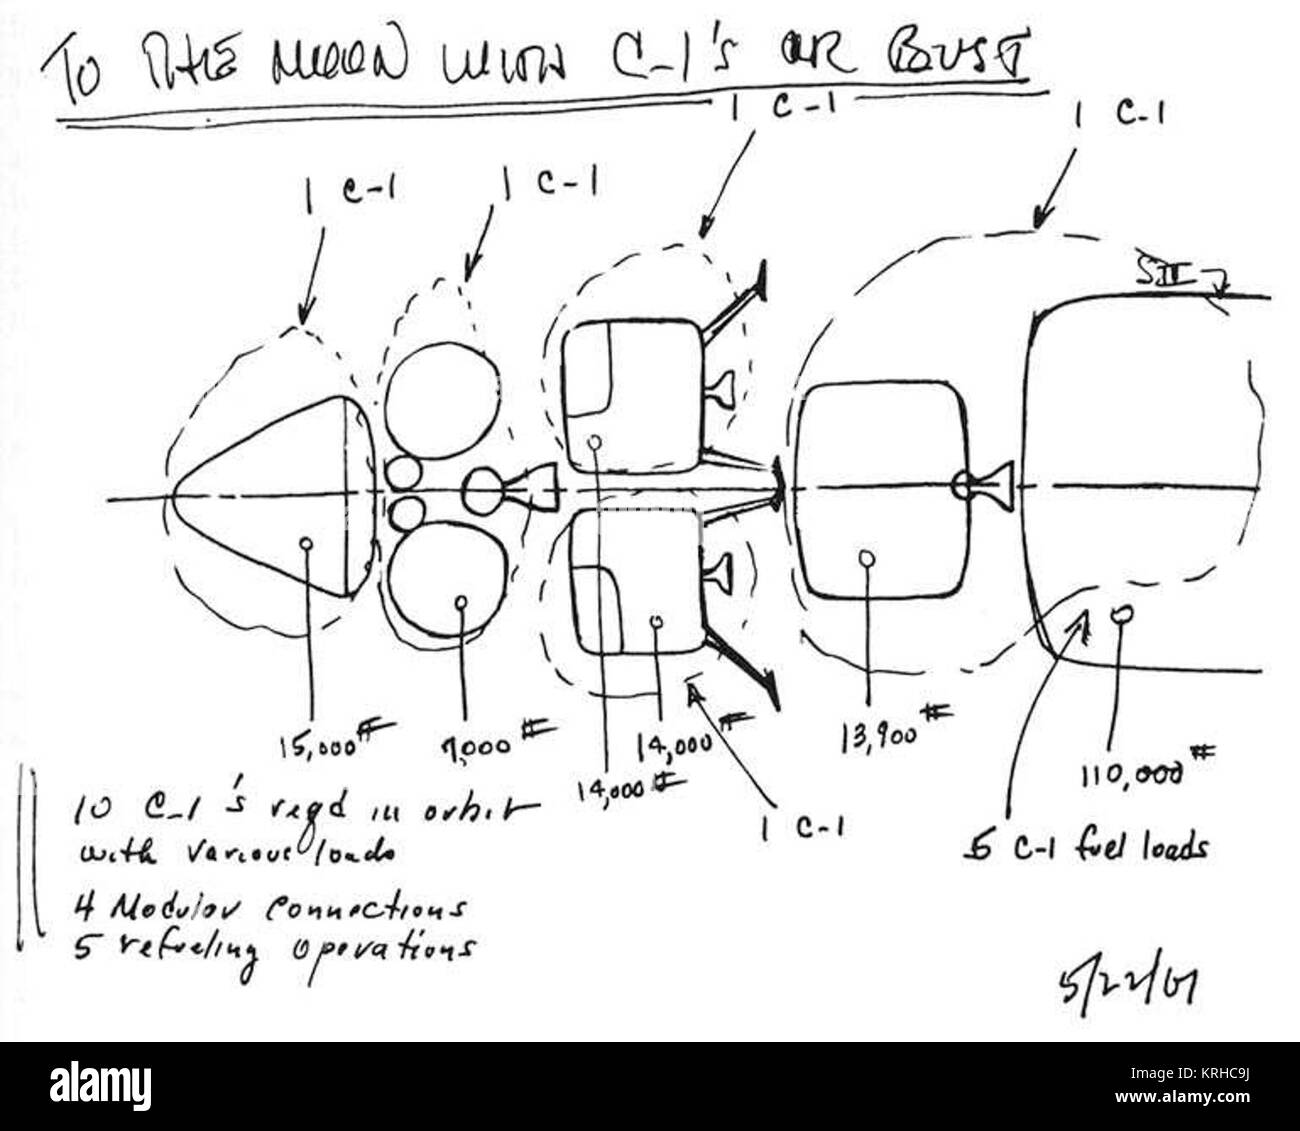 TO THE MOON WITH C-1's OR BUST
1 C-1
1 C-1
1 C-1
1 C-1
SII
15,000#
7,000#
14,000#
14,000#
13,900#
110,000#
1 C-1
5 C-1 fuel loads
10 C-1's reqd in orbit
with various loads
4 Modular connections
5 refueling operations
5/22/61
alamy
a
a
a
a
alamy
Image ID: KRHC9J
www.alamy.com